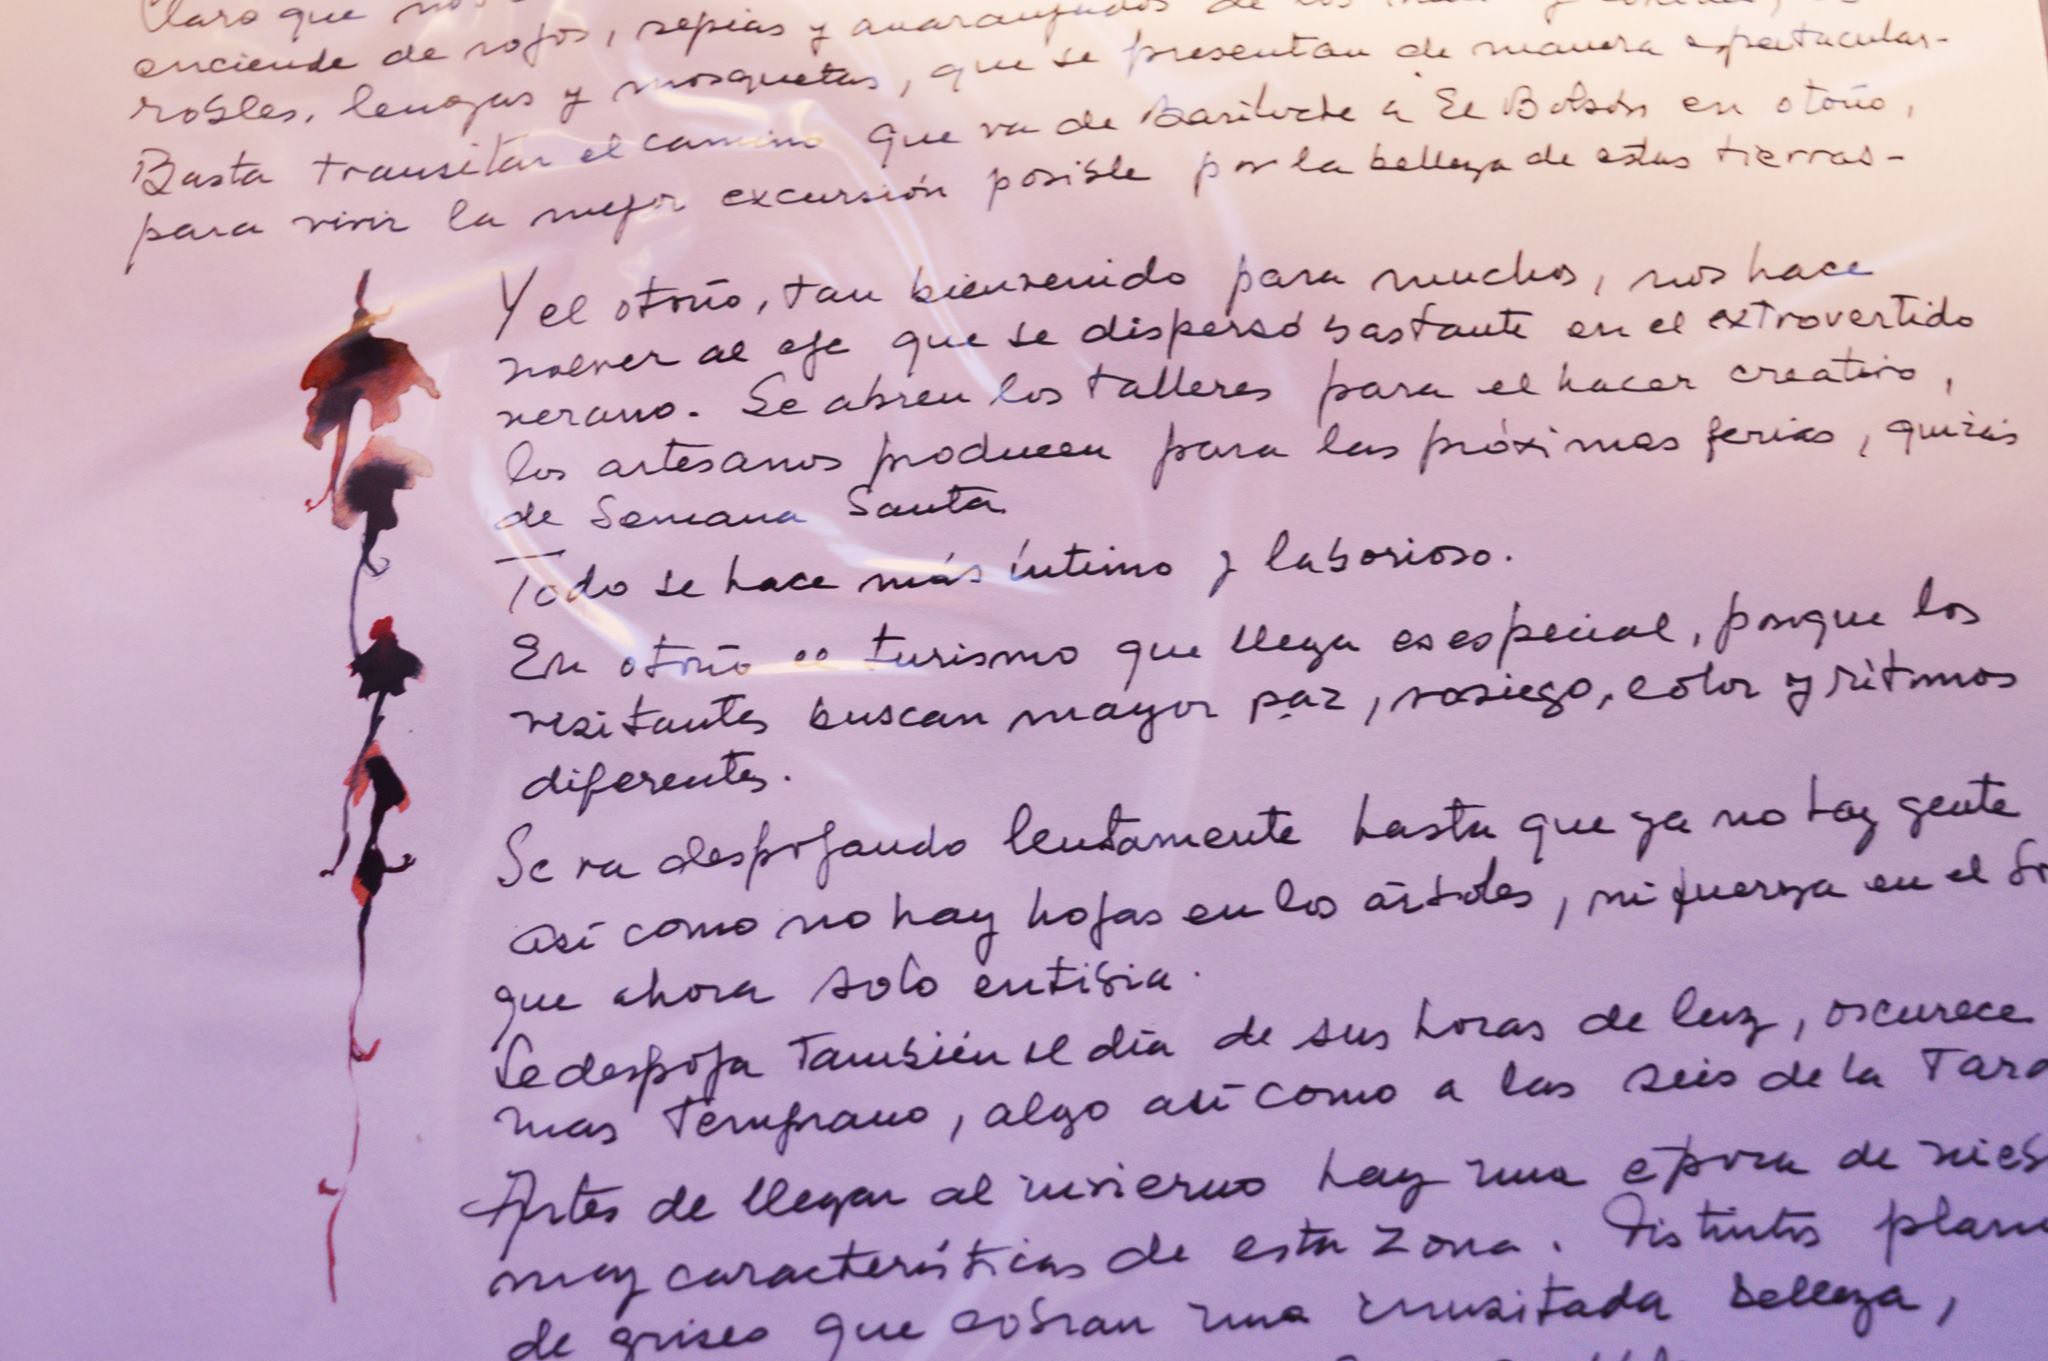 Claro que
enciende de rojos, sepias y anaranjados de los
robles, lengas y mosquetas, que se presentan de manera espectacular-
Basta transitar el camino que va de Bariloche a El Bolsón en otoño,
para vivir la mejor excursión posible por la belleza de estas tierras-
Y el otoño, tan bienvenido para muchos, nos hace
volver al eje que se dispersó bastante en el extrovertido
verano. Se abren los talleres para el hacer creativo,
los artesanos producen para las próximas ferias, quizás
de Semana Santa.
Todo se hace más íntimo y laborioso.
En otoño el turismo que llega es especial, porque los
visitantes buscan mayor paz, sosiego, color y ritmos
diferentes.
Se va despojando lentamente hasta que ya no hay gente
así como no hay hojas en los árboles, ni fuerza en el So
que ahora solo entibia.
Se despoja También el día de sus horas de luz, oscurece
mas Temprano, algo así como a las seis de la Tard
Antes de llegar al invierno hay una época de nieb
muy características de esta zona. Distintos plan
de grises que cobran una inusitada belleza,